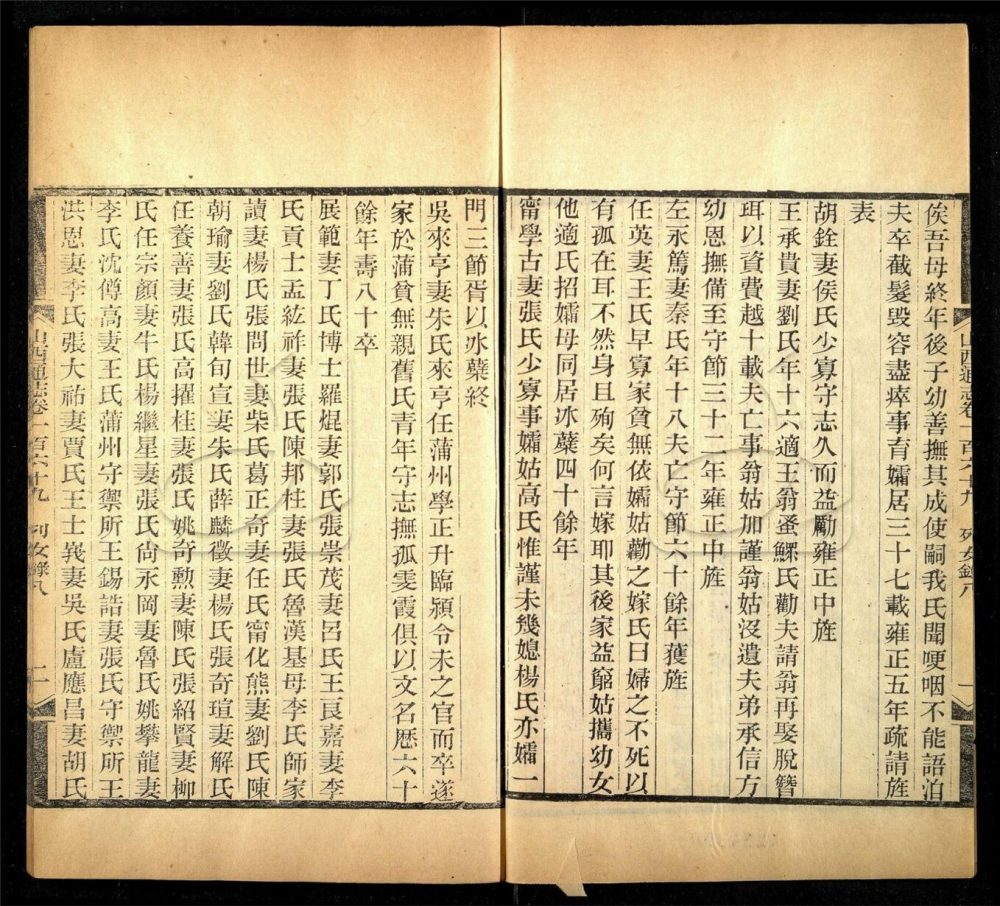 山西通志卷一百六十九 列女錄八 一
俟吾母終年後子幼善撫其成使嗣我氏聞哽咽不能語泊
夫卒截髮毀容盡瘁事育孀居三十七載雍正五年疏請旌
表
胡銓妻侯氏少寡守志久而益勵雍正中旌
王承貴妻劉氏年十六適王翁蚤鰥氏勸夫請翁再娶脫簪
珥以資費越十載夫亡事翁姑加謹翁姑沒遺夫弟承信方
幼恩撫備至守節三十二年雍正中旌
左永篤妻秦氏年十八夫亡守節六十餘年獲旌
任英妻王氏早寡家貧無依孀姑勸之嫁氏曰婦之不死以
有孤在耳不然身且殉矣何言嫁耶其後家益窮姑攜幼女
他適氏招孀母同居冰蘗四十餘年
甯學古妻張氏少寡事孀姑高氏惟謹未幾媳楊氏亦孀一
門三節胥以冰蘗終
吳來亨妻朱氏來亨任蒲州學正升臨潁令未之官而卒遂
家於蒲貧無親舊氏青年守志撫孤雯霞俱以文名歷六十
餘年壽八十卒
展範妻丁氏博士羅焜妻郭氏張崇茂妻呂氏王良嘉妻李
氏貢士孟紘祚妻張氏陳邦柱妻張氏魯漢基母李氏師家
讀妻楊氏張問世妻柴氏葛正奇妻任氏甯化熊妻劉氏陳
朝瑜妻劉氏韓旬宣妻朱氏薛麟徵妻楊氏張奇瑄妻解氏
任養善妻張氏高擢桂妻張氏姚奇勲妻陳氏張紹賢妻柳
氏任宗顏妻牛氏楊繼星妻張氏尙永岡妻魯氏姚攀龍妻
李氏沈傅高妻王氏蒲州守禦所王錫誥妻張氏守禦所王
洪恩妻李氏張大祐妻賈氏王士義妻吳氏盧應昌妻胡氏
山西通志卷一百六十九 列女錄八 二